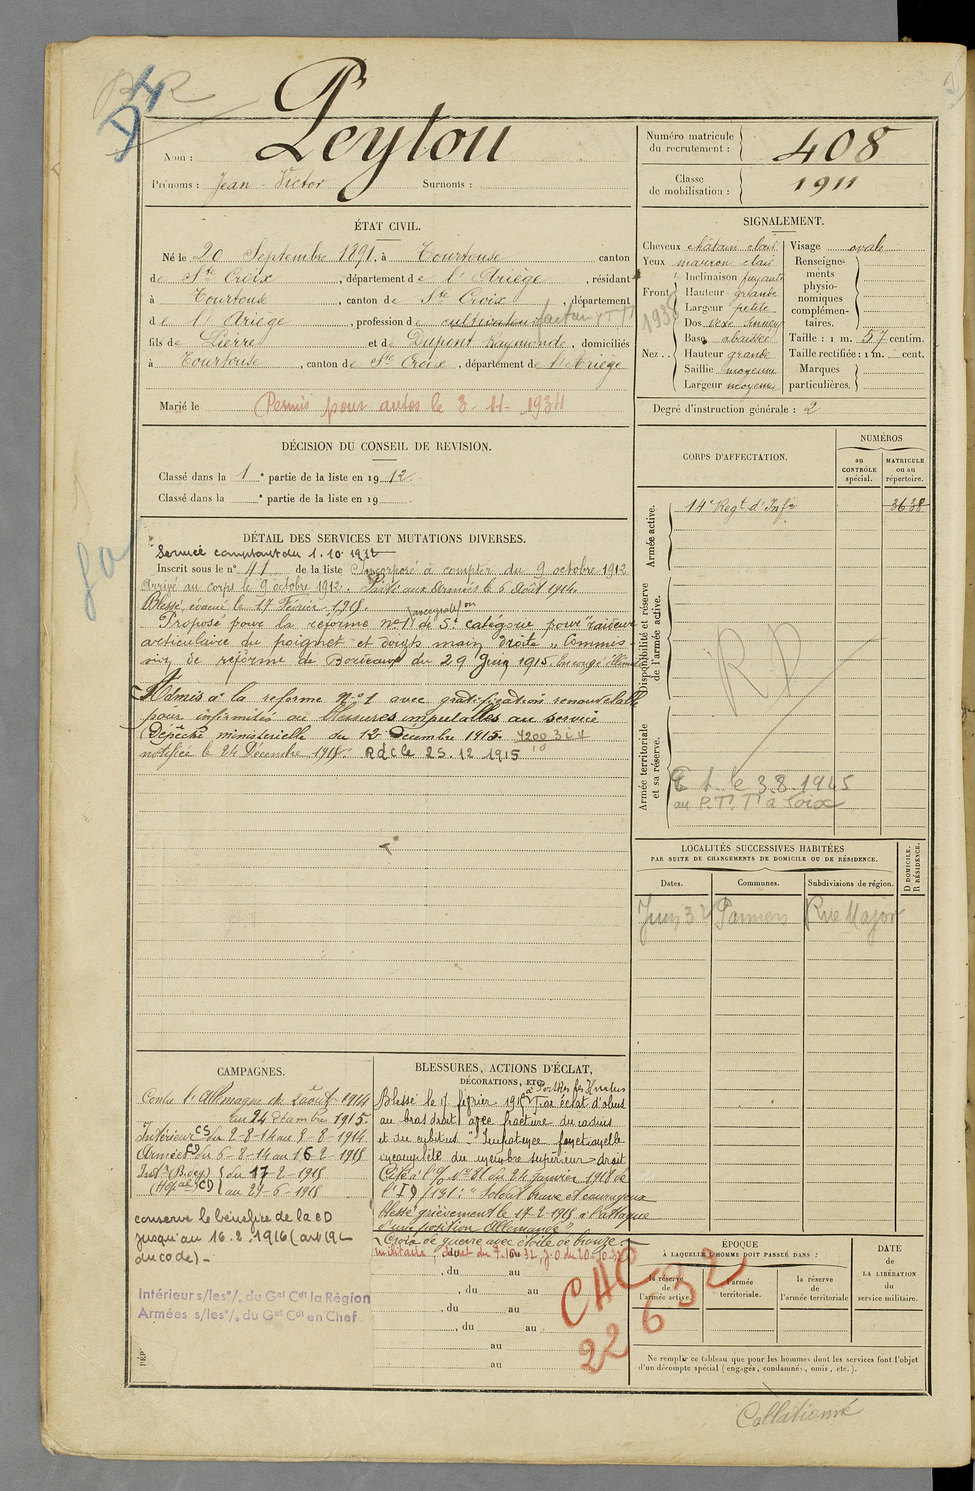 Peytou
Nom :
Prénoms : Jean - Victor Surnoms :
Numéro matricule du recrutement : 408
Classe de mobilisation : 1911
ÉTAT CIVIL.
Né le 20 Septembre 1891, à Tourtouse canton
de Ste Croix, département de l'Ariège, résidant
à Tourtouse, canton de Ste Croix, département
de l'Ariège, profession de cultivateur facteur P T T
fils de Pierre et de Dupont Raymonde, domiciliés
à Tourtouse, canton de Ste Croix, département de l'Ariège
Marié le
Permis pour autos le 3-11-1934
SIGNALEMENT.
Cheveux châtain clair
Yeux marron clair
Front Inclinaison fuyante
Hauteur grande
Largeur petite
Nez Dos vexe sinueux
Base abaissée
Hauteur grande
Saillie moyenne
Largeur moyenne
1935
Visage ovale
Renseignements physionomiques complémentaires.
Taille : 1 m. 57 centim.
Taille rectifiée : 1 m. cent.
Marques particulières.
Degré d'instruction générale : 2
DÉCISION DU CONSEIL DE REVISION.
Classé dans la 1e partie de la liste en 1912.
Classé dans la e partie de la liste en 19 .
DÉTAIL DES SERVICES ET MUTATIONS DIVERSES.
Service comptant du 1.10.1912
Inscrit sous le n° 41 de la liste Incorporé à compter du 9 octobre 1912
Arrivé au corps le 9 octobre 1912. Parti aux Armées le 6 Août 1914.
Blessé, évacué le 17 Février 1915.
Proposé pour la réforme n°1 de 5e catégorie pour raideur
articulaire du poignet et doigts main droite. Commis
sion de réforme de Bordeaux du 29 Juin 1915.
Admis à la reforme N°1 avec gratification renouvelable
pour infirmités ou blessures imputables au service
(Dépêche ministérielle du 12 Décembre 1915. 4200 3 i 4
notifiée le 24 Décembre 1915. R d C le 25.12 1915
CORPS D'AFFECTATION.
NUMÉROS
au CONTRÔLE spécial.
MATRICULE ou au répertoire.
Armée active.
14e Regt d'Infie 3638
Disponibilité et réserve de l'armée active.
Armée territoriale et sa réserve.
le 3.8.1945
au P.T.T. à Foix
LOCALITÉS SUCCESSIVES HABITÉES
PAR SUITE DE CHANGEMENTS DE DOMICILE OU DE RÉSIDENCE.
D DOMICILE. R RÉSIDENCE.
Dates. Communes. Subdivisions de région.
Juin 32 Pamiers Rue Major
CAMPAGNES.
Contre l'Allemagne du 2 août 1914
au 24 décembre 1915.
Intérieur CS du 2-8-14 au 5-8-1914
Armées CD du 6-8-14 au 16-2-1915
Intr (B. de g) (Hopal) CD du 17-2-1915
au 29-6-1915
conserve le bénéfice de la CD
jusqu'au 16.2.1916 (art 19 L
du code) -
Intérieur s/les °/. du Gal Cdt la Région
Armées s/les °/. du Gal Cdt en Chef
BLESSURES, ACTIONS D'ÉCLAT,
DÉCORATIONS, ETC.
Blessé le 17 février 1915 à Perthes les Hurlus Par éclat d'obus
au bras droit avec fracture du radius
et du cubitus. Impotence fonctionnelle
incomplète du membre supérieur droit
Cité à l'o/ n° 81 du 24 janvier 1918 de
l'ID/131 : "Soldat brave et courageux
blessé grièvement le 17-2-1915 à l'attaque
d'une position Allemande"
Croix de guerre avec étoile de bronze.
militaire, décret du 7.10.32, J.O. du 20.10.32
, du au
, du au
, du au
, du au
au
au
CAC
22 6 32
ÉPOQUE
À LAQUELLE L'HOMME DOIT PASSER DANS :
la réserve de l'armée active.
l'armée territoriale.
la réserve de l'armée territoriale
DATE de LA LIBÉRATION du service militaire.
Ne remplir ce tableau que pour les hommes dont les services font l'objet
d'un décompte spécial (engagés, condamnés, omis, etc.).
Collationné